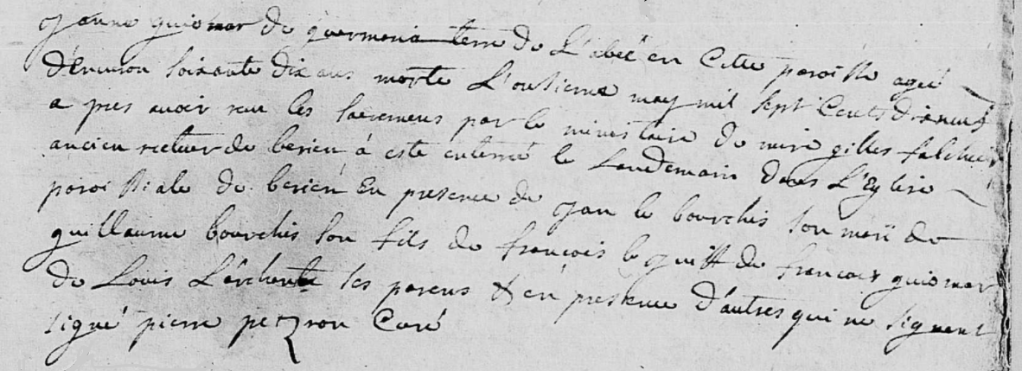 janne guiomar de quermena terre de L'abeé en Cette paroisse ageé
d'environ soixante dix ans morte L'onsieme may mil sept Cents dix neuf
a pres avoir reu les sacremens par le ministaire de mire gilles falchier
ancien recteur de berien à este enterré le Landemain dans L'Eglise
paroissiale de berien En presence de jan le bourchis son marÿ de
guillaume bourchis son fils de francois le guitt de francois guiomar
de Louis L'erchente ses parens & en presence d'autres qui ne signent
signé pierre petzron Curé